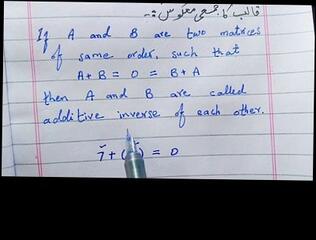 قالب کا جمعی معکوس :-
If A and B are two matrices
of same order, such that
A + B = 0 = B + A
then A and B are called
additive inverse of each other.
7 + ( ) = 0